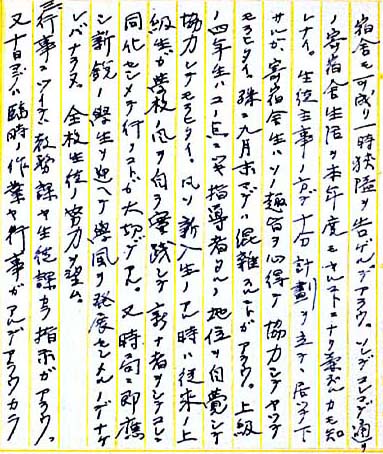 宿舎モ可成リ一時狭隘ヲ告ゲルデアラウ。ソシデコレマデ通リ
ノ寄宿舎生活ヲ本年度モヤルコトニナリ兼ネルカモ知
レナイ。生徒主事ノ方デ十分計劃ヲ立テ居ツテ下
サルガ、寄宿舎生ハソノ趣旨ヲ心得テ協力シテヤツテ
モラヒタイ。殊ニ九月末マデハ混雑スルコトガアラウ。上級
ノ四年生ハコノ点ニ於テ指導者タルノ地位ヲ自覚シテ
協力シテモラヒタイ。凡ソ新入生ノアル時ハ従来ノ上
級生ガ学校ノ風ヲ自ラ実践シテ新ナ者ヲシテコレニ
同化セシメテ行クコトガ大切デアル。又時局ニ即応
シ新鋭ノ学生ヲ迎ヘテ学風ヲ発展セシメルノデナケ
レバナラヌ。全校生徒ノ努力ヲ望ム。
三、行事ニツイテハ教務課ヤ生徒課カラ指示ガアラウ。
又十日マデハ臨時ノ作業ヤ行事ガアルデアラウカラ